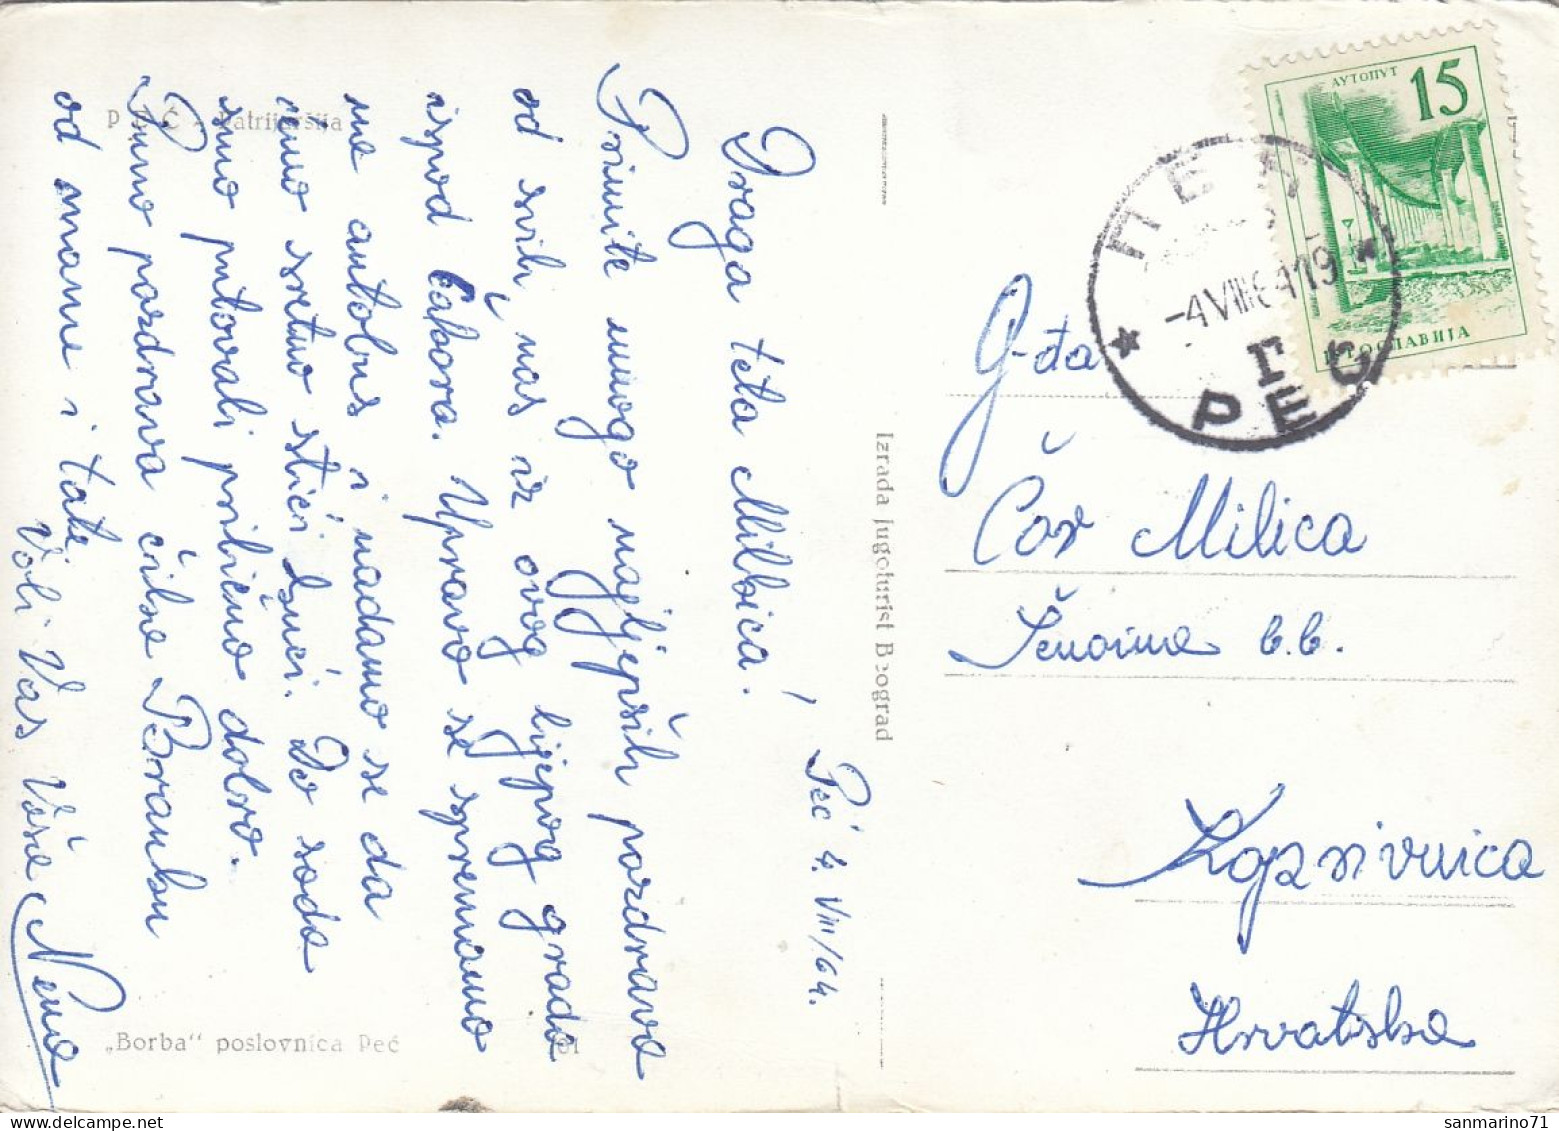 PEĆ - Patrijaršija
Peć 4. VIII/64.
Draga teta Milbica!
Primite mnogo najljepših pozdrava
od svih nas iz ovog lijepog grada
ispod Čakora. Upravo se spremamo
na autobus i nadamo se da
ćemo sretno stići kući. Do sada
smo putovali prilično dobro.
Puno pozdrava čika Branku
od mame i tate
Voli Vas Vaša Nena
„Borba“ poslovnica Peć
61
Izrada Jugoturist Beograd
АУТОПУТ 15
ЈУГОСЛАВИЈА
ПЕЋ
-4 VIII 64 19
PEĆ
G-đa
Čor Milica
Šenoina b.b.
Koprivnica
Hrvatska
sanmarino71